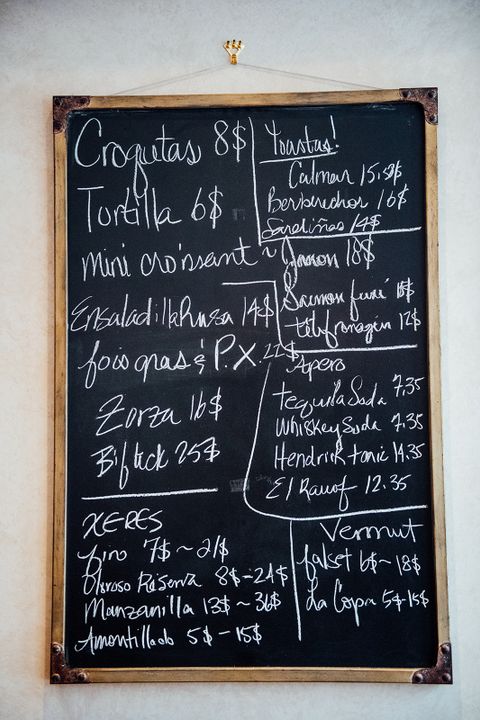 Croquetas 8$
Tortilla 6$
mini croissant ~ Jamon 18$
Ensaladilla Rusa 14$
fois gras & P.X. 22$
Zorza 16$
Biftek 25$
Toastas!
Calmar 15.50$
Berberechos 16$
Sardiñas 14$
Saumon fumé
tête fromage 12$
Apero
Tequila Soda 7,35
Whiskey Soda 7.35
Hendrick tonic 14.35
El Rauof 12.35
XERES
fino 7$ ~ 21$
Oloroso Réserva 8$-24$
Manzanilla 13$ ~ 36$
Amontillado 5$ - 15$
Vermut
falset 6$ ~ 18$
La Copa 5$-15$